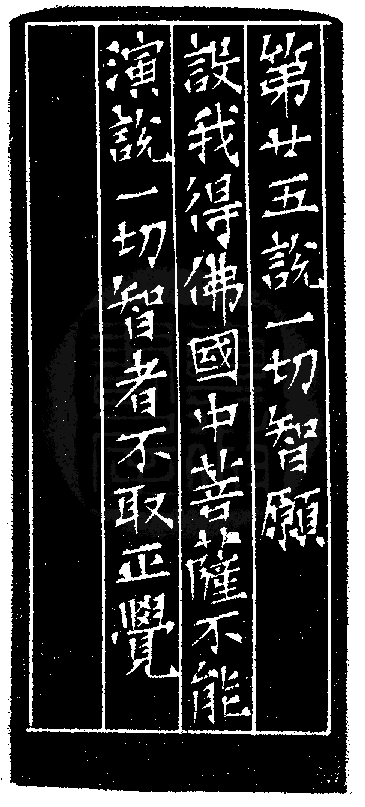 第廿五說一切智願
設我得佛國中菩薩不能
演說一切智者不取正覺